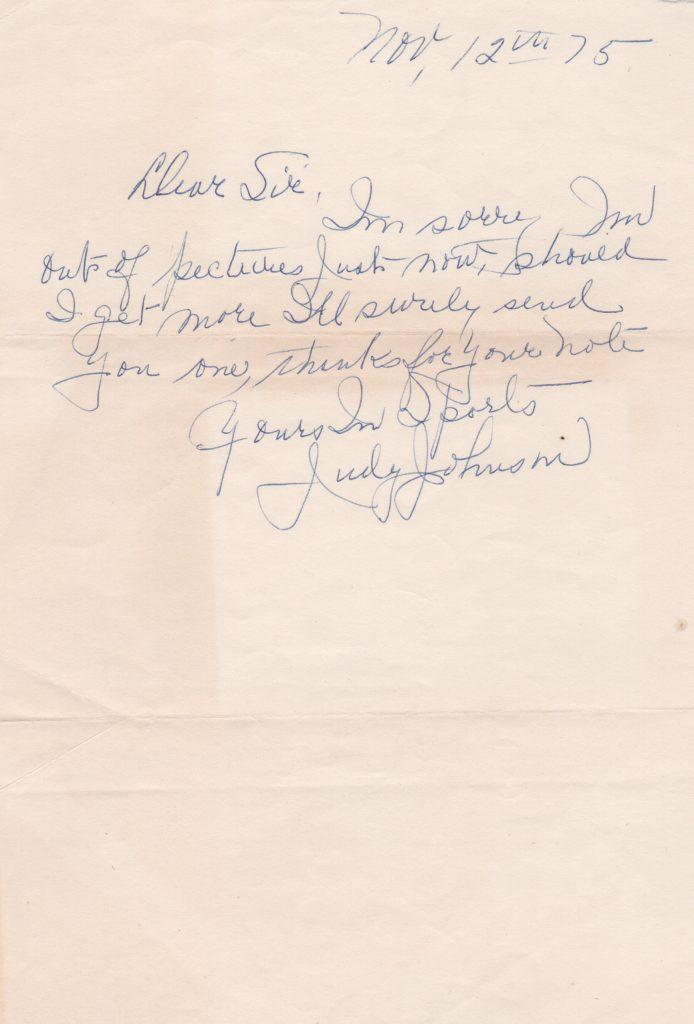 Nov, 12th 75
Dear Sir,
Im sorry Im
out of pictures just now, should
I get more I'll surely send
you one, thanks for your note
Yours In Sports
Judy Johnson